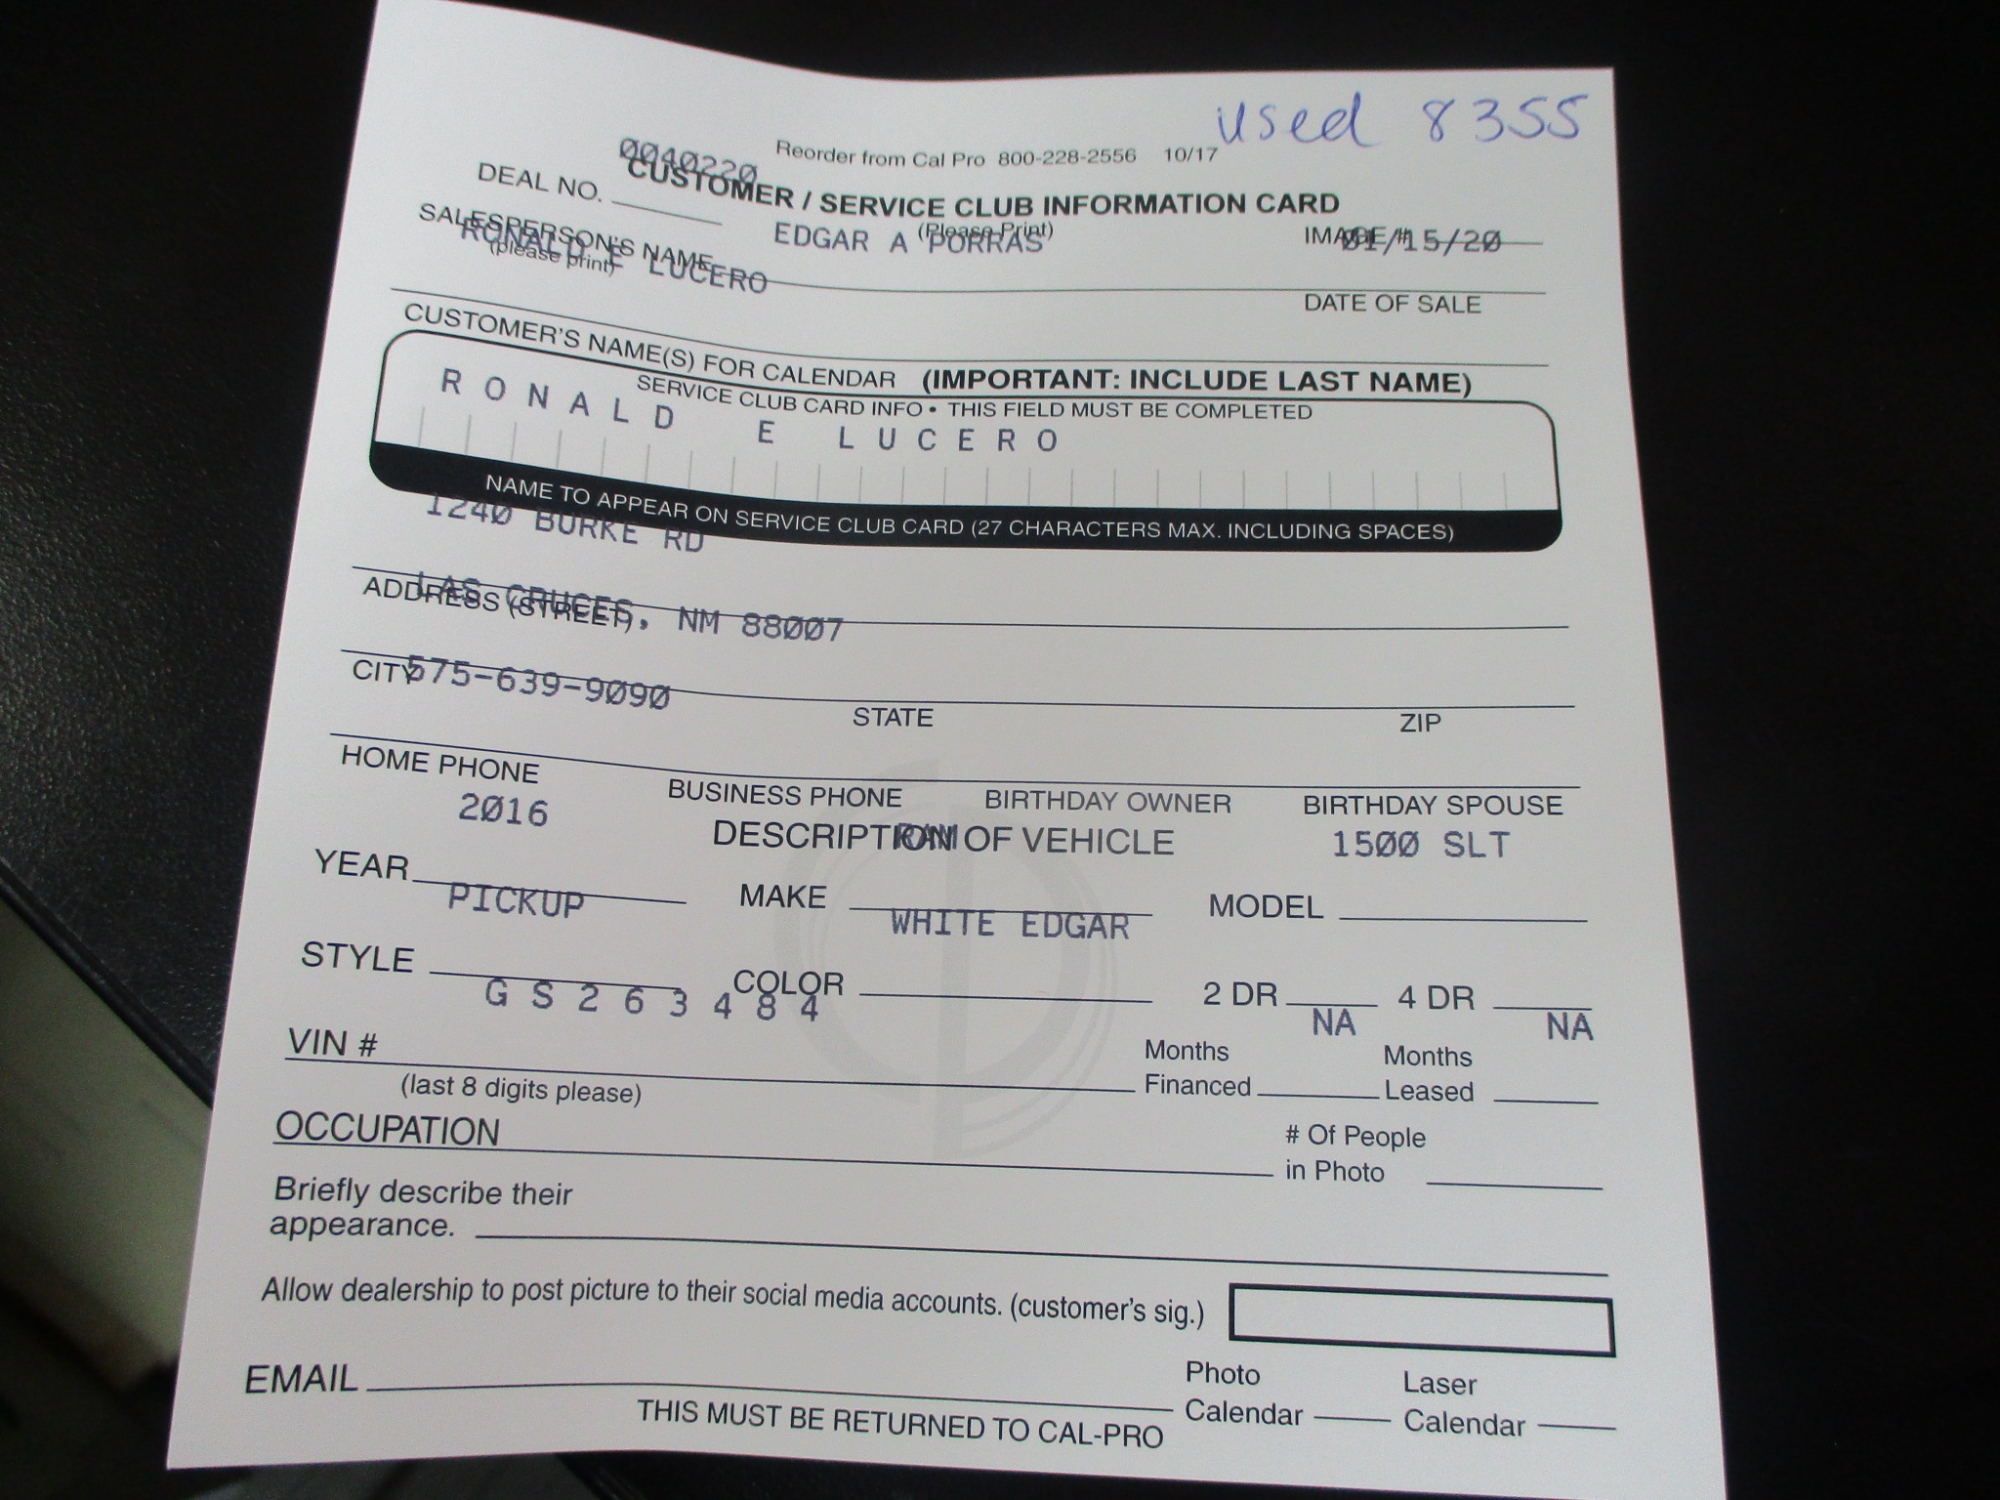 used 8355
Reorder from Cal Pro 800-228-2556 10/17
0040220
DEAL NO.
CUSTOMER / SERVICE CLUB INFORMATION CARD
(Please Print)
SALESPERSON'S NAME
(please print)
EDGAR A PORRAS
IMAGE #
01/15/20
RONALD E LUCERO
DATE OF SALE
CUSTOMER'S NAME(S) FOR CALENDAR (IMPORTANT: INCLUDE LAST NAME)
SERVICE CLUB CARD INFO • THIS FIELD MUST BE COMPLETED
R O N A L D E L U C E R O
NAME TO APPEAR ON SERVICE CLUB CARD (27 CHARACTERS MAX. INCLUDING SPACES)
1240 BURKE RD
ADDRESS (STREET)
LAS CRUCES, NM 88007
CITY STATE ZIP
575-639-9090
HOME PHONE BUSINESS PHONE BIRTHDAY OWNER BIRTHDAY SPOUSE
DESCRIPTION OF VEHICLE
2016 RAM 1500 SLT
YEAR MAKE MODEL
PICKUP WHITE EDGAR
STYLE COLOR 2 DR 4 DR
G S 2 6 3 4 8 4 NA NA
VIN # Months Financed Months Leased
(last 8 digits please)
OCCUPATION # Of People in Photo
Briefly describe their
appearance.
Allow dealership to post picture to their social media accounts. (customer's sig.)
EMAIL Photo Calendar Laser Calendar
THIS MUST BE RETURNED TO CAL-PRO